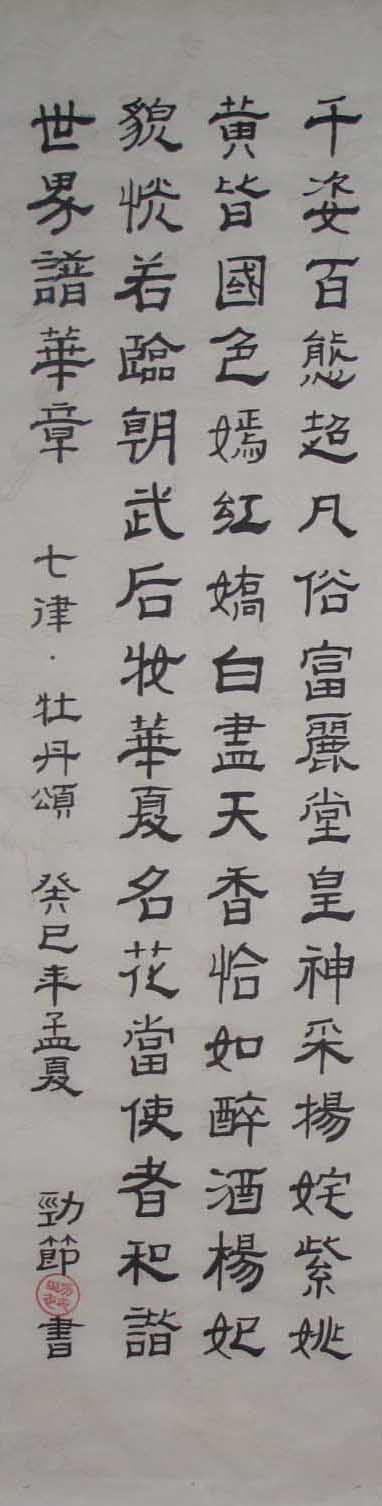 千姿百態超凡俗富麗堂皇神采揚姹紫姚
黄皆國色嫣紅嬌白盡天香恰如醉酒楊妃
貌恍若臨朝武后妝華夏名花當使者和諧
世界譜華章 七律·牡丹頌 癸巳年孟夏 勁節書